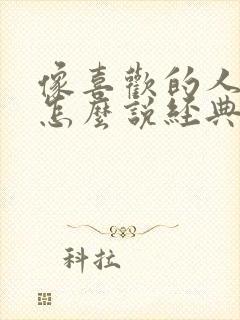 像喜歡的人
怎麼說經典
科拉